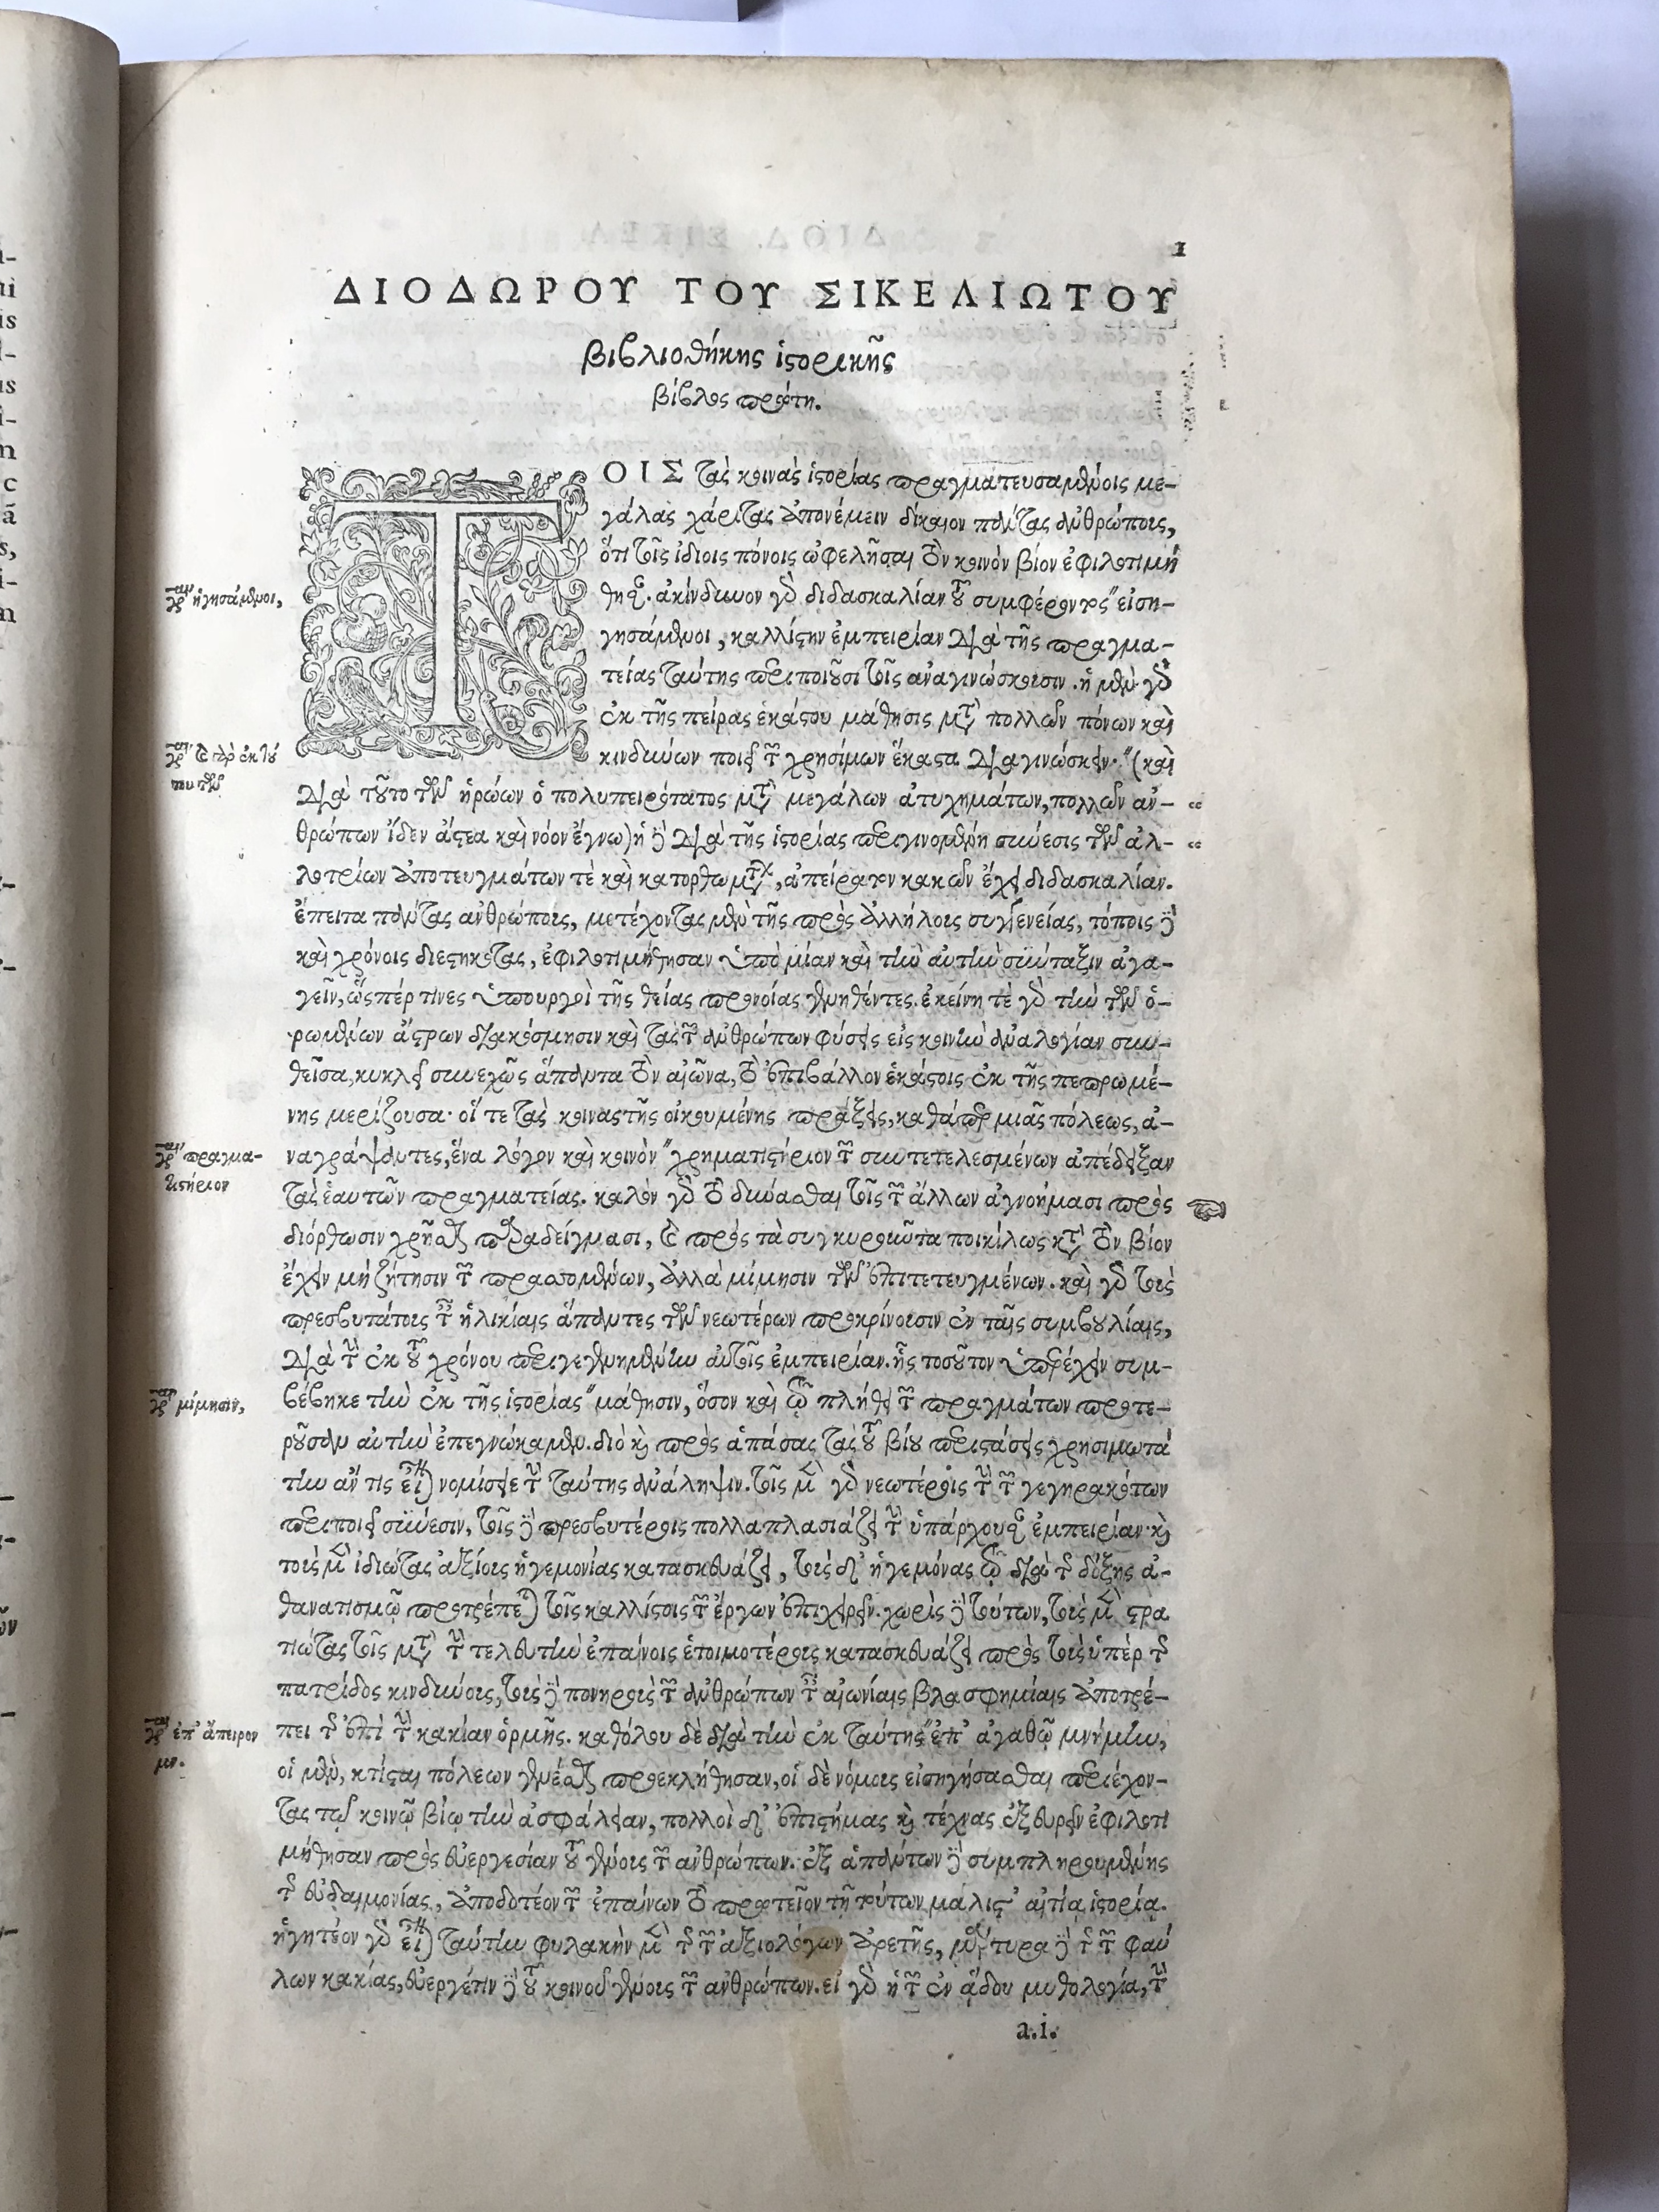 1
ΔΙΟΔΩΡΟΥ ΤΟΥ ΣΙΚΕΛΙΩΤΟΥ
βιβλιοθήκης ἱστορικῆς
βίβλος πρώτη.
ΤΟΙΣ τὰς κοινὰς ἱστορίας πραγματευσαμένοις με-
γάλας χάριτας ἀπονέμειν δίκαιον πάντας ἀνθρώπους,
ὅτι τοῖς ἰδίοις πόνοις ὠφελῆσαι τὸν κοινὸν βίον ἐφιλοτιμή
θησαν. ἀκίνδυνον γὰρ διδασκαλίαν τοῦ συμφέροντος "εἰση-
γησάμενοι, καλλίστην ἐμπειρίαν διὰ τῆς πραγμα-
τείας ταύτης περιποιοῦσι τοῖς ἀναγινώσκουσιν. ἡ μὲν γὰρ
ἐκ τῆς πείρας ἑκάστου μάθησις μετὰ πολλῶν πόνων καὶ
κινδύνων ποιεῖ τῶν χρησίμων ἕκαστα διαγινώσκειν. "(καὶ
διὰ τοῦτο τῶν ἡρώων ὁ πολυπειρότατος μετὰ μεγάλων ἀτυχημάτων, πολλῶν ἀν- "
θρώπων ἴδεν ἄστεα καὶ νόον ἔγνω) ἡ δὲ διὰ τῆς ἱστορίας περιγινομένη σύνεσις τῶν ἀλ- "
λοτρίων ἀποτευγμάτων τὲ καὶ κατορθωμάτων, ἀπείρατον κακῶν ἔχει διδασκαλίαν.
ἔπειτα πάντας ἀνθρώπους, μετέχοντας μὲν τῆς πρὸς ἀλλήλους συγγενείας, τόποις δὲ
καὶ χρόνοις διεστηκότας, ἐφιλοτιμήθησαν ὑπὸ μίαν καὶ τὴν αὐτὴν σύνταξιν ἀγα-
γεῖν, ὥσπέρ τινες ὑπουργοὶ τῆς θείας προνοίας γενηθέντες. ἐκείνη τὲ γὰρ τὴν τῶν ὁ-
ρωμένων ἄστρων διακόσμησιν καὶ τὰς τῶν ἀνθρώπων φύσεις εἰς κοινὴν ἀναλογίαν συν-
θεῖσα, κυκλεῖ συνεχῶς ἅπαντα τὸν αἰῶνα, τὸ ἐπιβάλλον ἑκάστοις ἐκ τῆς πεπρωμέ-
νης μερίζουσα· οἵ τε τὰς κοινὰς τῆς οἰκουμένης πράξεις, καθάπερ μιᾶς πόλεως, ἀ-
ναγράψαντες, ἕνα λόγον καὶ κοινὸν "χρηματιστήριον τῶν συντετελεσμένων ἀπέδειξαν
τὰς ἑαυτῶν πραγματείας. καλὸν γὰρ τὸ δύνασθαι τοῖς τῶν ἄλλων ἀγνοήμασι πρὸς
διόρθωσιν χρῆσθαι παραδείγμασι, καὶ πρὸς τὰ συγκυροῦντα ποικίλως κατὰ τὸν βίον
ἔχειν μὴ ζήτησιν τῶν πραττομένων, ἀλλὰ μίμησιν τῶν ἐπιτετευγμένων. καὶ γὰρ τοὺς
πρεσβυτάτους ταῖς ἡλικίαις ἅπαντες τῶν νεωτέρων προκρίνουσιν ἐν ταῖς συμβουλίαις,
διὰ τὴν ἐκ τοῦ χρόνου περιγεγενημένην αὐτοῖς ἐμπειρίαν. ἧς τοσοῦτον ὑπερέχειν συμ-
βέβηκε τὴν ἐκ τῆς ἱστορίας "μάθησιν, ὅσον καὶ τῷ πλήθει τῶν πραγμάτων προτε-
ροῦσαν αὐτὴν ἐπεγνώκαμεν. διὸ καὶ πρὸς ἁπάσας τὰς τοῦ βίου περιστάσεις χρησιμωτά
την ἄν τις εἶναι νομίσειε τὴν ταύτης ἀνάληψιν. τοῖς μὲν γὰρ νεωτέροις τὴν τῶν γεγηρακότων
περιποιεῖ σύνεσιν, τοῖς δὲ πρεσβυτέροις πολλαπλασιάζει τὴν ὑπάρχουσαν ἐμπειρίαν· καὶ
τοὺς μὲν ἰδιώτας ἀξίους ἡγεμονίας κατασκευάζει, τοὺς δ' ἡγεμόνας τῷ διὰ τῆς δόξης ἀ-
θανατισμῷ προτρέπεται τοῖς καλλίστοις τῶν ἔργων ἐπιχειρεῖν. χωρὶς δὲ τούτων, τοὺς μὲν στρα
τιώτας τοῖς μετὰ τὴν τελευτὴν ἐπαίνοις ἑτοιμοτέρους κατασκευάζει πρὸς τοὺς ὑπὲρ τῆς
πατρίδος κινδύνους, τοὺς δὲ πονηροὺς τῶν ἀνθρώπων ταῖς αἰωνίαις βλασφημίαις ἀποτρέ-
πει τῆς ἐπὶ τὴν κακίαν ὁρμῆς. καθόλου δὲ διὰ τὴν ἐκ ταύτης "ἐπ' ἀγαθῷ μνήμην,
οἱ μὲν, κτίσται πόλεων γενέσθαι προεκλήθησαν, οἱ δὲ νόμους εἰσηγήσασθαι περιέχον-
τας τῷ κοινῷ βίῳ τὴν ἀσφάλειαν, πολλοὶ δ' ἐπιστήμας καὶ τέχνας ἐξευρεῖν ἐφιλοτι
μήθησαν πρὸς εὐεργεσίαν τοῦ γένους τῶν ἀνθρώπων. ἐξ ἁπάντων δὲ συμπληρουμένης
τῆς εὐδαιμονίας, ἀποδοτέον τῶν ἐπαίνων τὸ πρωτεῖον τῇ τούτων μάλιστ' αἰτίᾳ ἱστορίᾳ.
ἡγητέον γὰρ εἶναι ταύτην φυλακὴν μὲν τῆς τῶν ἀξιολόγων ἀρετῆς, μάρτυρα δὲ τῆς τῶν φαύ
λων κακίας, εὐεργέτιν δὲ τοῦ κοινοῦ γένους τῶν ἀνθρώπων. εἰ γὰρ ἡ τῶν ἐν ᾅδου μυθολογία, τὴν
a.i.
γρ. ἡγησάμενοι,
γρ. πραγμα-
τιστήριον
γρ. μίμησιν,
γρ. ἐπ' ἄπειρον
μν.